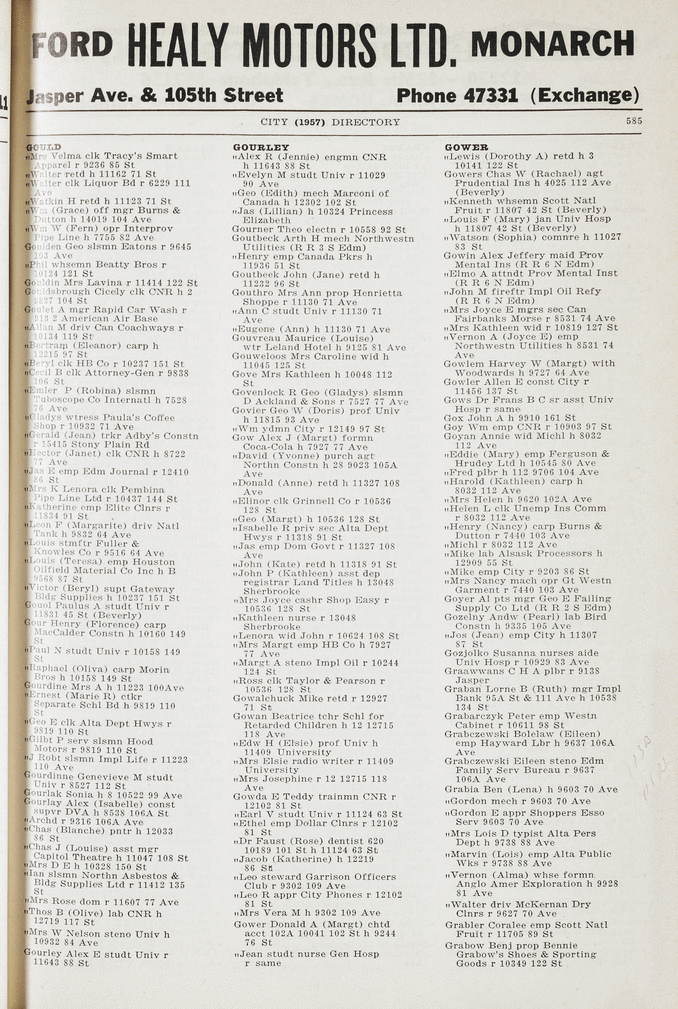 FORD HEALY MOTORS LTD. MONARCH
Jasper Ave. & 105th Street Phone 47331 (Exchange)
CITY (1957) DIRECTORY 585
GOULD
"Mrs Velma clk Tracy's Smart
Apparel r 9236 85 St
"Walter retd h 11162 71 St
"Walter clk Liquor Bd r 6229 111
Ave
"Watkin H retd h 11123 71 St
"Wm (Grace) off mgr Burns &
Dutton h 14019 104 Ave
"Wm W (Fern) opr Interprov
Pipe Line h 7755 82 Ave
Goulden Geo slsmn Eatons r 9645
103 Ave
"Phil whsemn Beatty Bros r
10124 121 St
Gouldin Mrs Lavina r 11414 122 St
Gouldsbrough Cicely clk CNR h 2
104 St
Goulet A mgr Rapid Car Wash r
2 American Air Base
"Allan M driv Can Coachways r
10134 119 St
"Bertram (Eleanor) carp h
12215 97 St
"Beryl clk HB Co r 10237 151 St
"Cecil B clk Attorney-Gen r 9838
106 St
"Emler P (Robina) slsmn
Tuboscope Co Internatl h 7528
76 Ave
"Gladys wtress Paula's Coffee
Shop r 10932 71 Ave
"Gerald (Jean) trkr Adby's Constn
r 15415 Stony Plain Rd
"Hector (Janet) clk CNR h 8722
77 Ave
"Jas E emp Edm Journal r 12410
86 St
"Mrs K Lenora clk Pembina
Pipe Line Ltd r 10437 144 St
"Katherine emp Elite Clnrs r
11834 91 St
"Leon F (Margarite) driv Natl
Tank h 9832 64 Ave
"Louis stmftr Fuller &
Knowles Co r 9516 64 Ave
"Louis (Teresa) emp Houston
Oilfield Material Co Inc h B
9568 87 St
"Victor (Beryl) supt Gateway
Bldg Supplies h 10237 151 St
Gouol Paulus A studt Univ r
11831 45 St (Beverly)
Gour Henry (Florence) carp
MacCalder Constn h 10160 149
St
"Paul N studt Univ r 10158 149
St
"Raphael (Oliva) carp Morin
Bros h 10158 149 St
Gourdine Mrs A h 11223 100Ave
"Ernest (Marie R) ctkr
Separate Schl Bd h 9819 110
St
"Geo E clk Alta Dept Hwys r
9819 110 St
"Gilbt P serv slsmn Hood
Motors r 9819 110 St
"J Robt slsmn Impl Life r 11223
110 Ave
Gourdinne Genevieve M studt
Univ r 8527 112 St
Gourlak Sonia h 8 10522 99 Ave
Gourlay Alex (Isabelle) const
supvr DVA h 8538 106A St
"Archd r 9316 106A Ave
"Chas (Blanche) pntr h 12033
86 St
"Chas J (Louise) asst mgr
Capitol Theatre h 11047 108 St
"Mrs D E h 10328 150 St
"Ian slsmn Northn Asbestos &
Bldg Supplies Ltd r 11412 135
St
"Mrs Rose dom r 11607 77 Ave
"Thos B (Olive) lab CNR h
12719 117 St
"Mrs W Nelson steno Univ h
10932 84 Ave
Gourley Alex E studt Univ r
11643 88 St
GOURLEY
"Alex R (Jennie) engmn CNR
h 11643 88 St
"Evelyn M studt Univ r 11029
90 Ave
"Geo (Edith) mech Marconi of
Canada h 12302 102 St
"Jas (Lillian) h 10324 Princess
Elizabeth
Gourner Theo electn r 10558 92 St
Goutbeck Arth H mech Northwestn
Utilities (R R 3 S Edm)
"Henry emp Canada Pkrs h
11936 51 St
Goutbeck John (Jane) retd h
11232 96 St
Gouthro Mrs Ann prop Henrietta
Shoppe r 11130 71 Ave
"Ann C studt Univ r 11130 71
Ave
"Eugene (Ann) h 11130 71 Ave
Gouvreau Maurice (Louise)
wtr Leland Hotel h 9125 81 Ave
Gouweloos Mrs Caroline wid h
11045 125 St
Gove Mrs Kathleen h 10048 112
St
Govenlock R Geo (Gladys) slsmn
D Ackland & Sons r 7527 77 Ave
Govier Geo W (Doris) prof Univ
h 11815 93 Ave
"Wm ydmn City r 12149 97 St
Gow Alex J (Margt) formn
Coca-Cola h 7927 77 Ave
"David (Yvonne) purch agt
Northn Constn h 28 9023 105A
Ave
"Donald (Anne) retd h 11327 108
Ave
"Elinor clk Grinnell Co r 10536
128 St
"Geo (Margt) h 10536 128 St
"Isabelle R priv sec Alta Dept
Hwys r 11318 91 St
"Jas emp Dom Govt r 11327 108
Ave
"John (Kate) retd h 11318 91 St
"John P (Kathleen) asst dep
registrar Land Titles h 13048
Sherbrooke
"Mrs Joyce cashr Shop Easy r
10536 128 St
"Kathleen nurse r 13048
Sherbrooke
"Lenora wid John r 10624 108 St
"Mrs Margt emp HB Co h 7927
77 Ave
"Margt A steno Impl Oil r 10244
124 St
"Ross clk Taylor & Pearson r
10536 128 St
Gowalchuck Mike retd r 12927
71 St
Gowan Beatrice tchr Schl for
Retarded Children h 12 12715
118 Ave
"Edw H (Elsie) prof Univ h
11409 University
"Mrs Elsie radio writer r 11409
University
"Mrs Josephine r 12 12715 118
Ave
Gowda E Teddy trainmn CNR r
12102 81 St
"Earl V studt Univ r 11124 63 St
"Ethel emp Dollar Clnrs r 12102
81 St
"Dr Faust (Rose) dentist 620
10189 101 St h 11124 63 St
"Jacob (Katherine) h 12219
86 St
"Leo steward Garrison Officers
Club r 9302 109 Ave
"Leo R appr City Phones r 12102
81 St
"Mrs Vera M h 9302 109 Ave
Gower Donald A (Margt) chtd
acct 102A 10041 102 St h 9244
76 St
"Jean studt nurse Gen Hosp
r same
GOWER
"Lewis (Dorothy A) retd h 3
10141 122 St
Gowers Chas W (Rachael) agt
Prudential Ins h 4025 112 Ave
(Beverly)
"Kenneth whsemn Scott Natl
Fruit r 11807 42 St (Beverly)
"Louis F (Mary) jan Univ Hosp
h 11807 42 St (Beverly)
"Watson (Sophia) comnre h 11027
83 St
Gowin Alex Jeffery maid Prov
Mental Ins (R R 6 N Edm)
"Elmo A attndt Prov Mental Inst
(R R 6 N Edm)
"John M fireftr Impl Oil Refy
(R R 6 N Edm)
"Mrs Joyce E mgrs sec Can
Fairbanks Morse r 8531 74 Ave
"Mrs Kathleen wid r 10819 127 St
"Vernon A (Joyce E) emp
Northwestn Utilities h 8531 74
Ave
Gowlem Harvey W (Margt) with
Woodwards h 9727 64 Ave
Gowler Allen E const City r
11456 137 St
Gows Dr Frans B C sr asst Univ
Hosp r same
Gox John A h 9910 161 St
Goy Wm emp CNR r 10903 97 St
Goyan Annie wid Michl h 8032
112 Ave
"Eddie (Mary) emp Ferguson &
Hrudey Ltd h 10545 80 Ave
"Fred plbr h 112 9706 104 Ave
"Harold (Kathleen) carp h
8032 112 Ave
"Mrs Helen h 9620 102A Ave
"Helen L clk Unemp Ins Comm
r 8032 112 Ave
"Henry (Nancy) carp Burns &
Dutton r 7440 103 Ave
"Michl r 8032 112 Ave
"Mike lab Alsask Processors h
12909 55 St
"Mike emp City r 9203 86 St
"Mrs Nancy mach opr Gt Westn
Garment r 7440 103 Ave
Goyer Al pts mgr Geo E Failing
Supply Co Ltd (R R 2 S Edm)
Gozelny Andw (Pearl) lab Bird
Constn h 9335 105 Ave
"Jos (Jean) emp City h 11307
87 St
Gozjolko Susanna nurses aide
Univ Hosp r 10929 83 Ave
Graawwans C H A plbr r 9138
Jasper
Graban Lorne B (Ruth) mgr Impl
Bank 95A St & 111 Ave h 10538
134 St
Grabarczyk Peter emp Westn
Cabinet r 10611 98 St
Grabczewski Bolelaw (Eileen)
emp Hayward Lbr h 9637 106A
Ave
Grabczewski Eileen steno Edm
Family Serv Bureau r 9637
106A Ave
Grabia Ben (Lena) h 9603 70 Ave
"Gordon mech r 9603 70 Ave
"Gordon E appr Shoppers Esso
Serv 9603 70 Ave
"Mrs Lois D typist Alta Pers
Dept h 9738 88 Ave
"Marvin (Lois) emp Alta Public
Wks r 9738 88 Ave
"Vernon (Alma) whse formn
Anglo Amer Exploration h 9928
81 Ave
"Walter driv McKernan Dry
Clnrs r 9627 70 Ave
Grabler Coralee emp Scott Natl
Fruit r 11705 89 St
Grabow Benj prop Bennie
Grabow's Shoes & Sporting
Goods r 10349 122 St